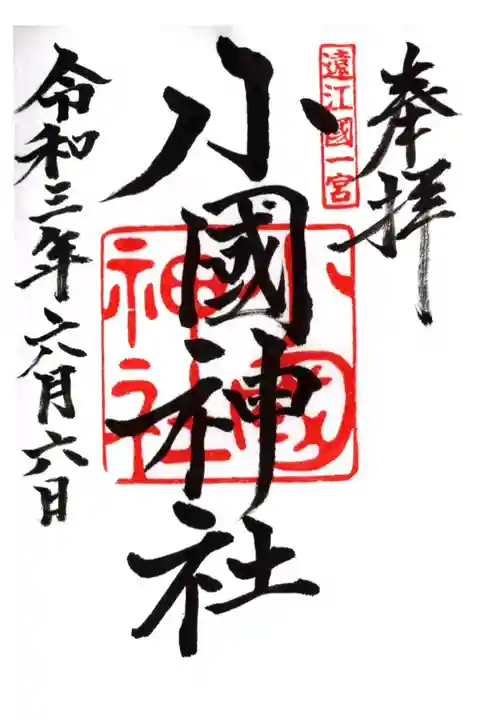 奉拝
遠江國一宮
小國神社
小國神社
令和三年六月六日